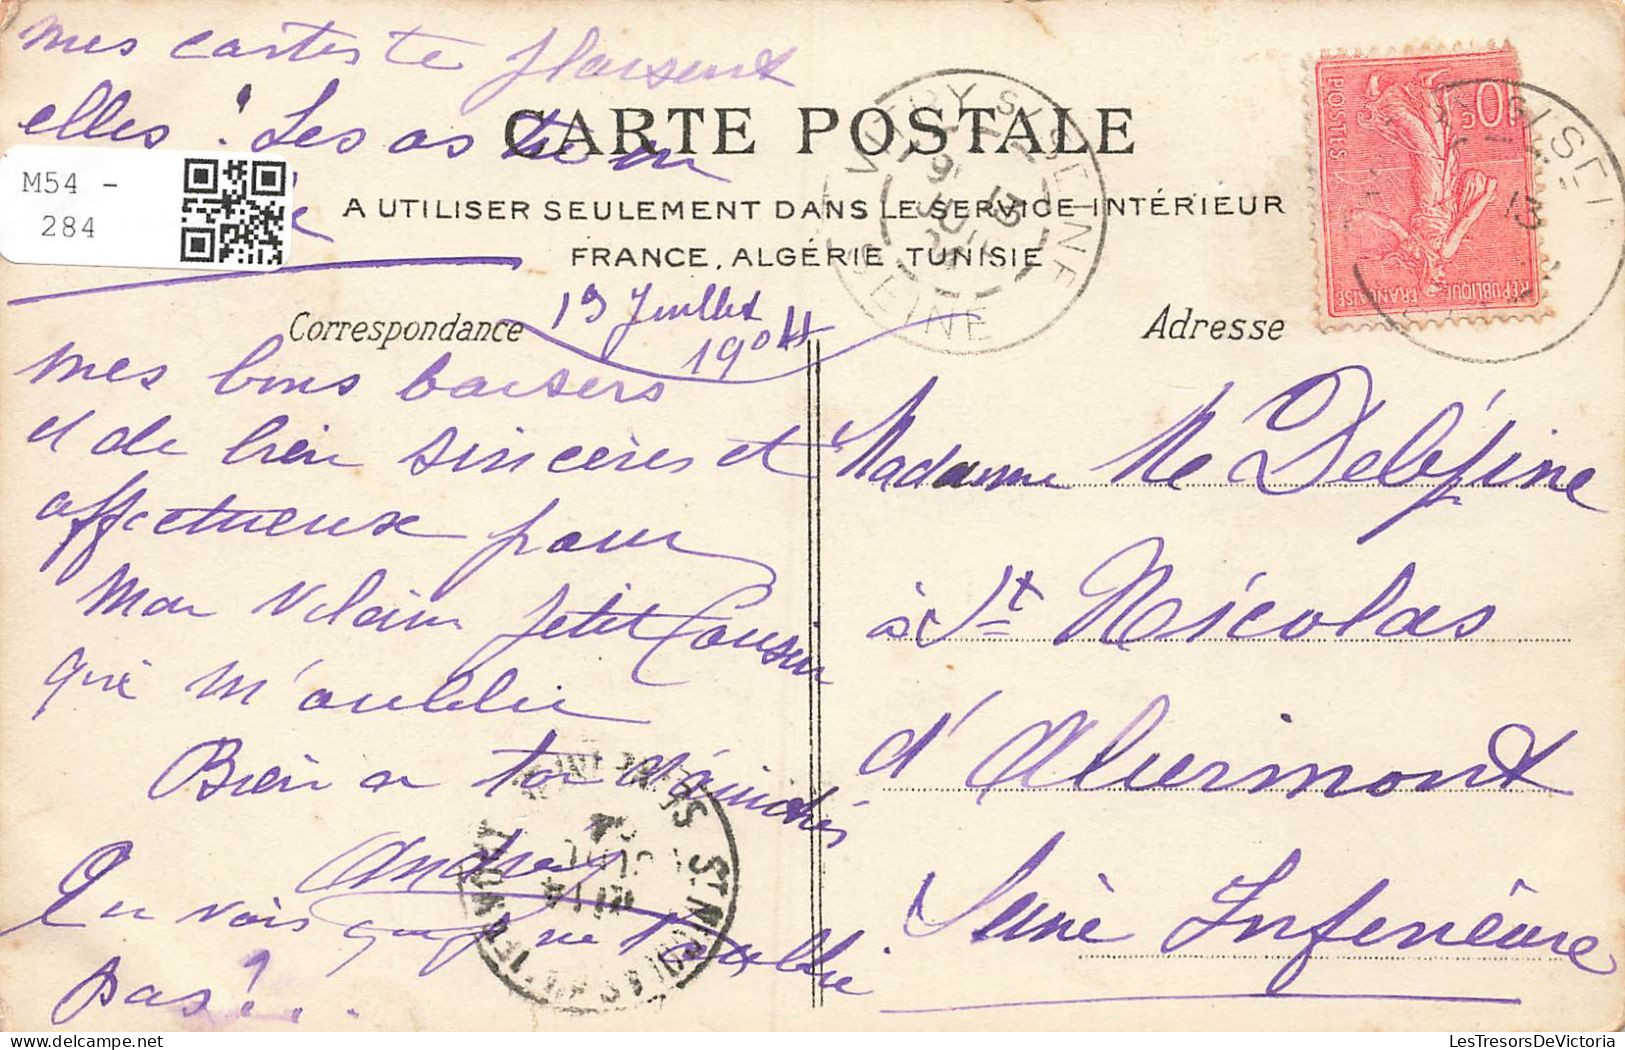 mes cartes te plaisent
elles ! Les as tu eu
CARTE POSTALE
M54 -
284
A UTILISER SEULEMENT DANS LE SERVICE INTÉRIEUR
FRANCE, ALGÉRIE TUNISIE
VITRY S/SEINE
SEINE
10c
POSTES
RÉPUBLIQUE FRANÇAISE
13 Juillet
1904
Correspondance
Adresse
mes bons baisers
et de bien sincères et
affectueux pour
Mon vilain petit Cousin
qui m'oublie
Bien a toi
Andrée
Tu vois que je ne t'oublie
pas ! . .
Madame Me Delépine
à St Nicolas
d'Aliermont
Seine Inférieure
LesTresorsDeVictoria.com